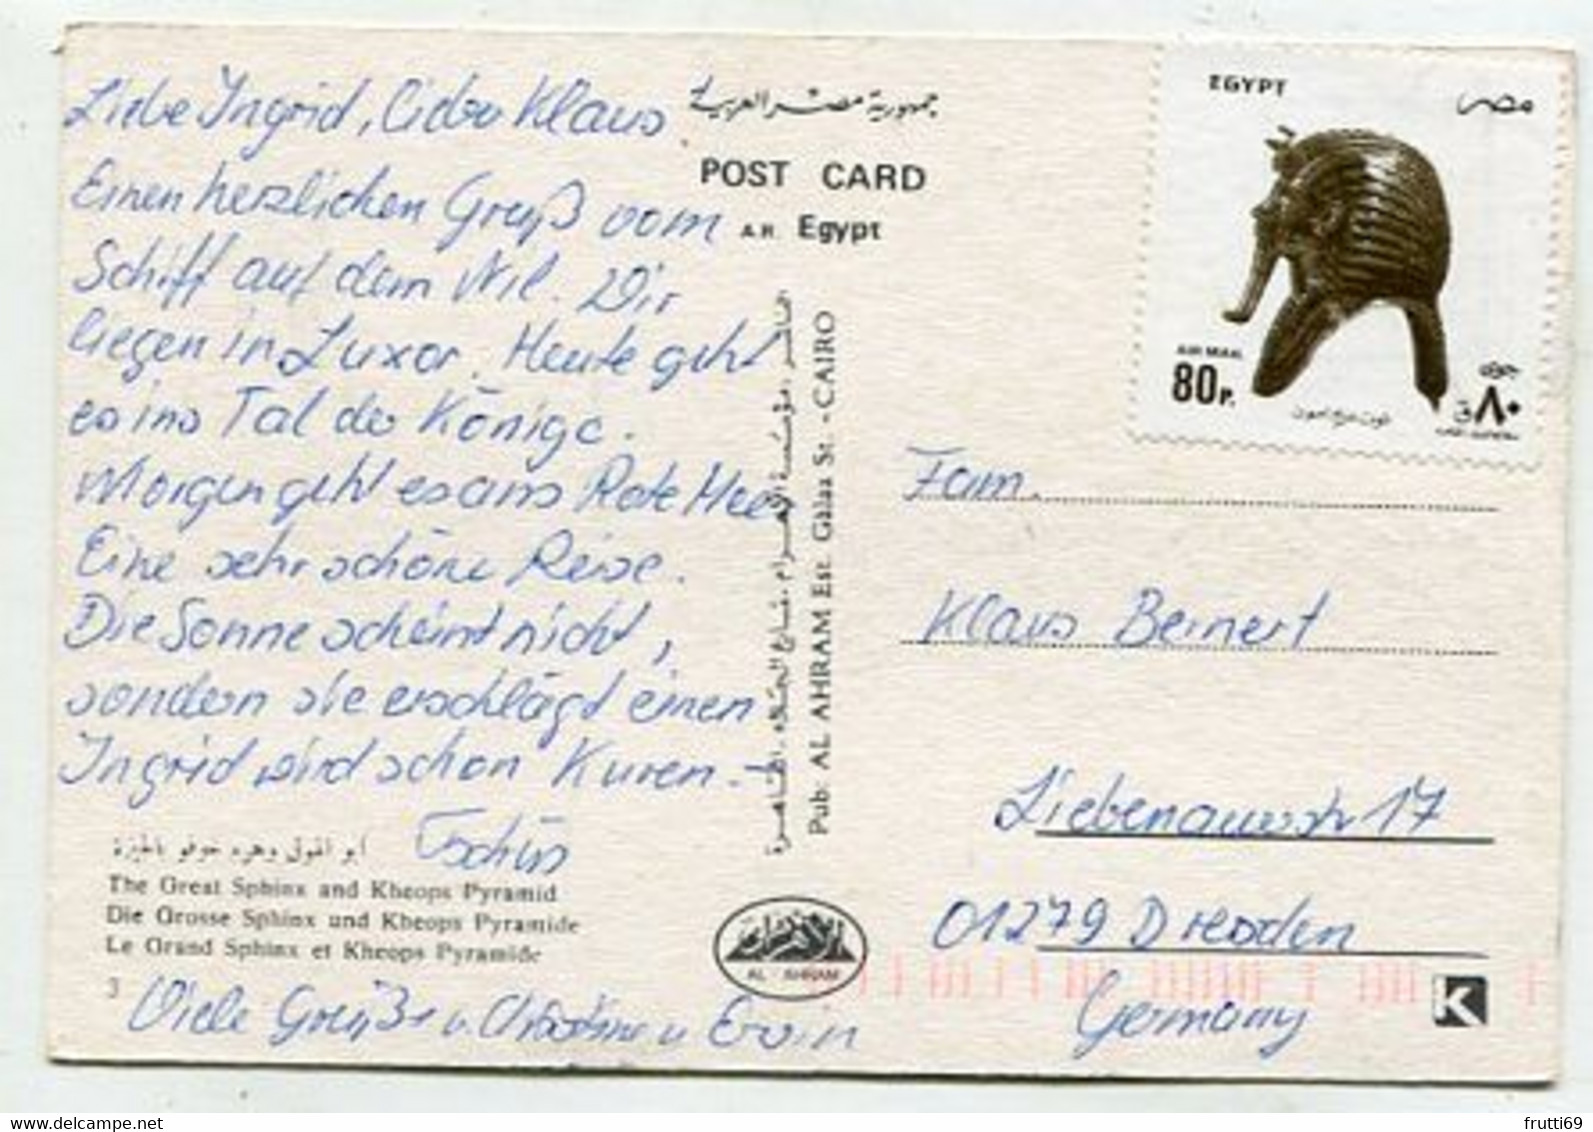 Liebe Ingrid, lieber Klaus
Einen herzlichen Gruß vom
Schiff auf dem Nil. Wir
liegen in Luxor. Heute geht
es ins Tal der Könige.
Morgen geht es ans Rote Meer
Eine sehr schöne Reise.
Die Sonne scheint nicht,
sondern sie erschlägt einen
Ingrid wird schon Kuren.-
Tschüs
أبو الهول وهرم خوفو بالجيزة
The Great Sphinx and Kheops Pyramid
Die Grosse Sphinx und Kheops Pyramide
Le Grand Sphinx et Kheops Pyramide
3
Viele Grüße u. Christine u Erwin
جمهورية مصر العربية
POST CARD
A.R. Egypt
الناشر: مؤسسة الأهرام شارع الجلاء القاهرة
Pub: AL AHRAM Est. Galaa St. - CAIRO
AL - AHRAM
EGYPT
مصر
AIR MAIL
80 P.
توت عنخ آمون
٨٠
Fam.
Klaus Beinert
Liebenauerstr 17
01279 Dresden
Germany
K
Delcampe.net
frutti69